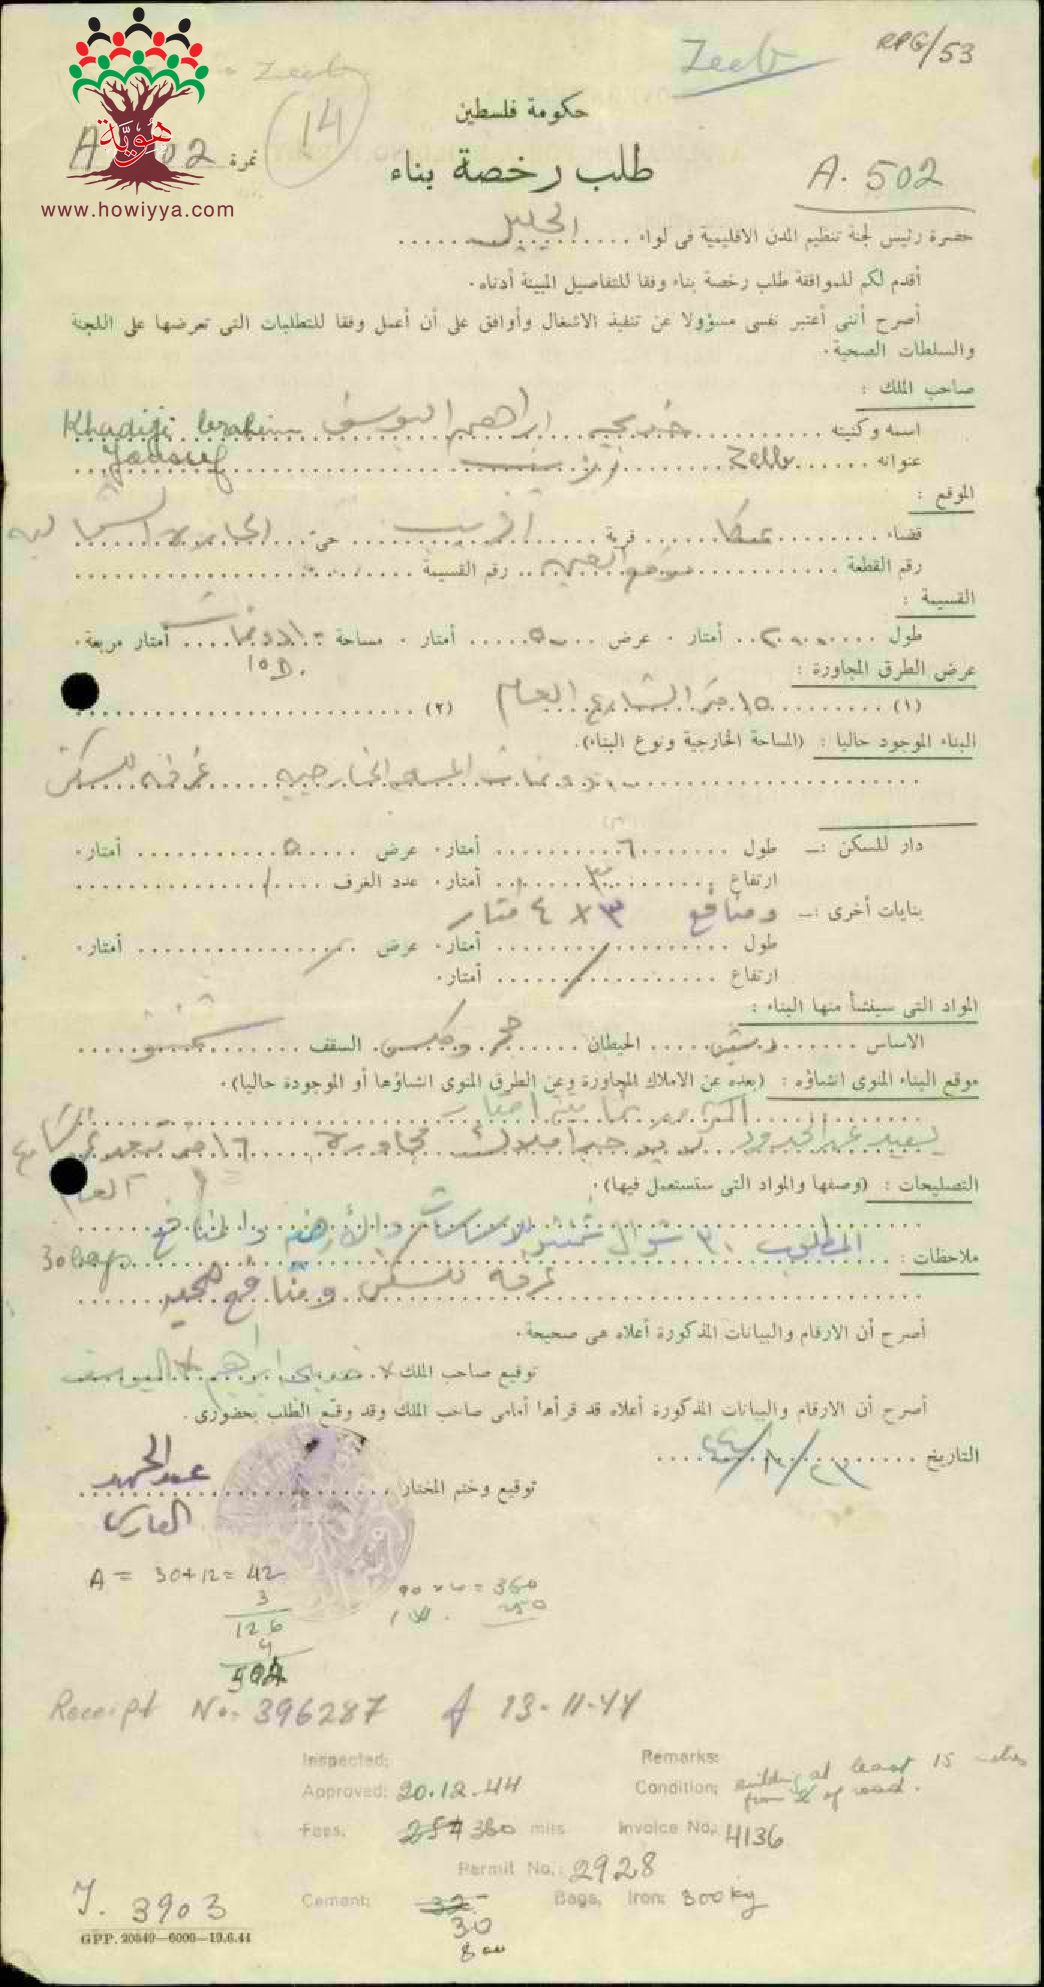 Zeeb
RPG/53
Zeeb
14
حكومة فلسطين
هوية
نمرة A 02
طلب رخصة بناء
A. 502
www.howiyya.com
حضرة رئيس لجنة تنظيم المدن الاقليمية فى لواء الجليل
أقدم لكم للموافقة طلب رخصة بناء وفقا للتفاصيل المبينة أدناه.
أصرح أننى أعتبر نفسى مسؤولا عن تنفيذ الاشغال وأوافق على أن أعمل وفقا للمتطلبات التى تعرضها على اللجنة
والسلطات الصحية.
صاحب الملك :
اسمه وكنيته خديجه ابراهيم اليوسف Khadigi Ibrahim
عنوانه Zeeb الزيب Yousouf
الموقع :
قضاء عكا قرية الزيب حى الحاره الشماليه
رقم القطعة رقم القسيمة
القسيمة :
طول أمتار . عرض أمتار . مساحة دونمات أمتار مربعة.
10 D.
عرض الطرق المجاورة :
(١) ١٥ متر الشارع العام (٢)
البناء الموجود حاليا : (المساحة الخارجية ونوع البناء).
دونمات المساحه الخارجيه غرفه للسكن
دار للسكن :ــ طول ٦ أمتار. عرض ٥ أمتار.
ارتفاع ٣ أمتار. عدد الغرف ١
بنايات أخرى :ــ ومنافع ٣ x ٤ متار
طول أمتار. عرض أمتار.
ارتفاع أمتار.
المواد التى سينشأ منها البناء :
الاساس الحيطان حجر السقف شمنتو
موقع البناء المنوى انشاؤه : (بعده عن الاملاك المجاورة وعن الطرق المنوى انشاؤها أو الموجودة حاليا).
امتار
لا يوجد املاك مجاوره ١٦ متر تبعد عن الشارع
العام
التصليحات : (وصفها والمواد التى ستستعمل فيها).
المطلوب ٣٠ شوال شمنتو للاساسات والأرضه والمنافع
ملاحظات : 30 bags
غرفه للسكن ومنافع صحيه
أصرح أن الارقام والبيانات المذكورة أعلاه هى صحيحة.
توقيع صاحب الملك خديجه ابراهيم اليوسف
أصرح أن الارقام والبيانات المذكورة أعلاه قد قرأها أمامى صاحب الملك وقد وقع الطلب بحضورى.
التاريخ ٢٣/١٠/٤٤
توقيع وختم المختار عبد الحميد
الفارس
A = 30+12 = 42
3
126
4
504
90 x 4 = 360
Receipt No. 396287 13-11-44
Inspected: Remarks:
Approved: 20.12.44 Condition: building at least 15 metres
from of road.
Fees, 360 mils Invoice No. 4136
Permit No.: 2928
Cement: 32 Bags, Iron: 300 kg
30
J. 3903
GPP. 20840—6000—19.6.44